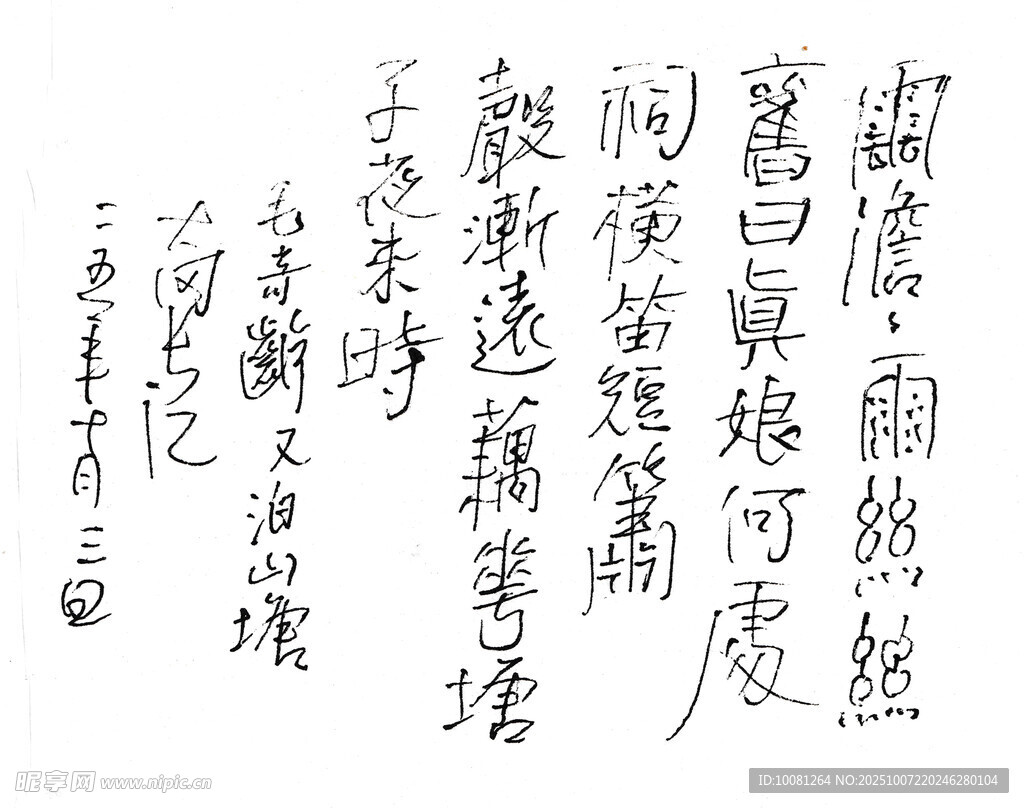 雲澹〻雨絲絲
舊日真娘何處
祠橫笛短簫
聲漸遠藕華塘
子夜來時
毛奇齡又泊山塘
记
二五年十月三日
昵享网 www.nipic.cn
ID:10081264 NO:20251007220246280104